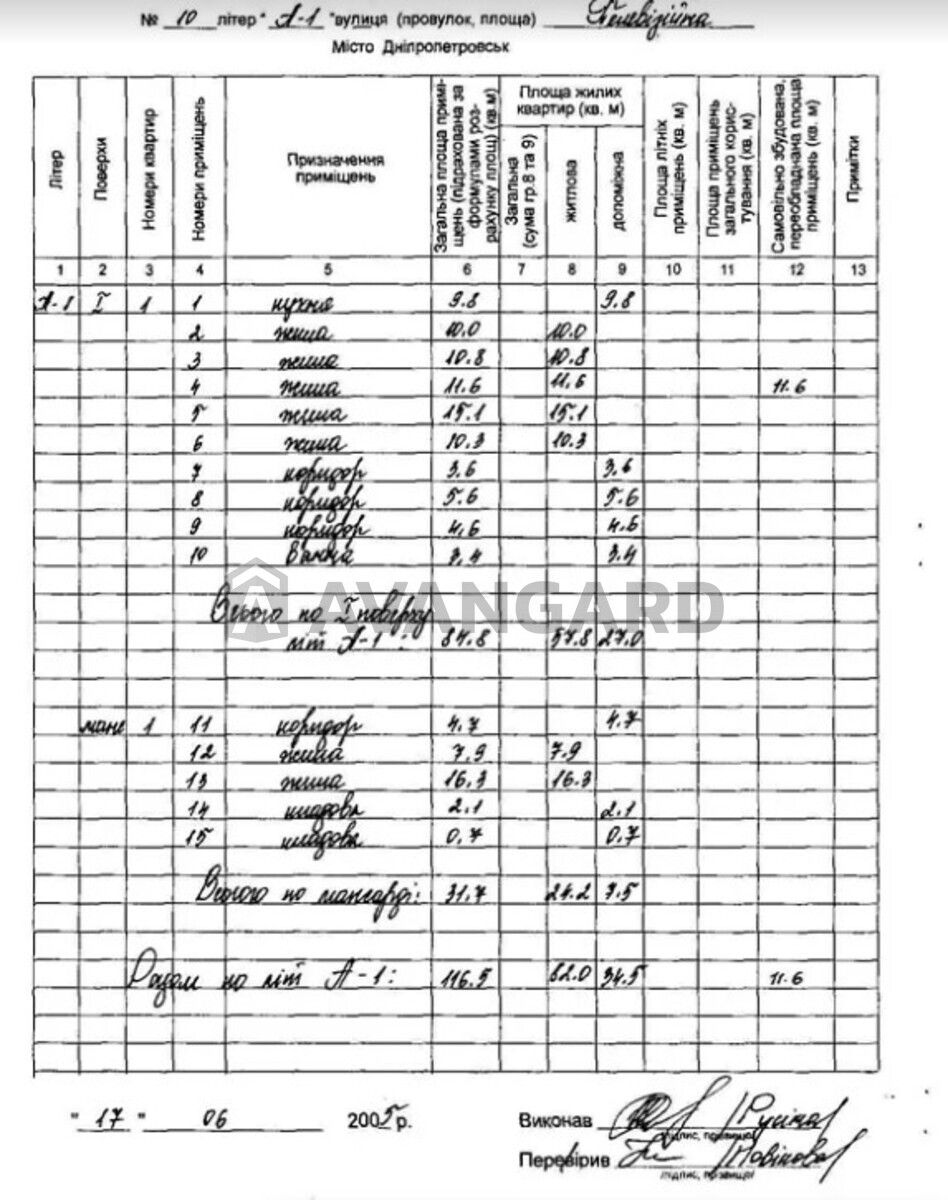 № 10 літер " А-1 " вулиця (провулок, площа) Телевізійна
Місто Дніпропетровськ
Літер
Поверхи
Номери квартир
Номери приміщень
Призначення приміщень
Загальна площа приміщень (підрахована за формулами розрахунку площ) (кв.м)
Площа жилих квартир (кв. м)
Загальна (сума гр.8 та 9)
житлова
допоміжна
Площа літніх приміщень (кв. м)
Площа приміщень загального користування (кв. м)
Самовільно збудована, переобладнана площа приміщень (кв. м)
Примітки
1 2 3 4 5 6 7 8 9 10 11 12 13
А-1 I 1 1 кухня 9.8 9.8
2 жила 10.0 10.0
3 жила 10.8 10.8
4 жила 11.6 11.6 11.6
5 жила 15.1 15.1
6 жила 10.3 10.3
7 коридор 3.6 3.6
8 коридор 5.6 5.6
9 коридор 4.6 4.6
10 ванна 3.4 3.4
AVANGARD
Всього по I поверху
літ А-1: 84.8 57.8 27.0
манс 1 11 коридор 4.7 4.7
12 жила 7.9 7.9
13 жила 16.3 16.3
14 кладова 2.1 2.1
15 кладова 0.7 0.7
Всього по мансарді: 31.7 24.2 7.5
Разом по літ А-1: 116.5 82.0 34.5 11.6
" 17 " 06 2005р.
Виконав Русіна
підпис, прізвище
Перевірив Новікова
підпис, прізвище